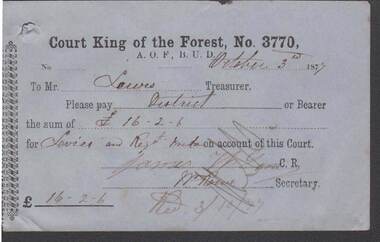 Court King of the Forest, No. 3770,
A. O. F., B. U. D.
No October 3rd 1877
To Mr. Lewis Treasurer.
Please pay District or Bearer
the sum of £ 16-2-6
for Levies and Regt. on account of this Court.
James C. R.
Secretary.
£ 16-2-6